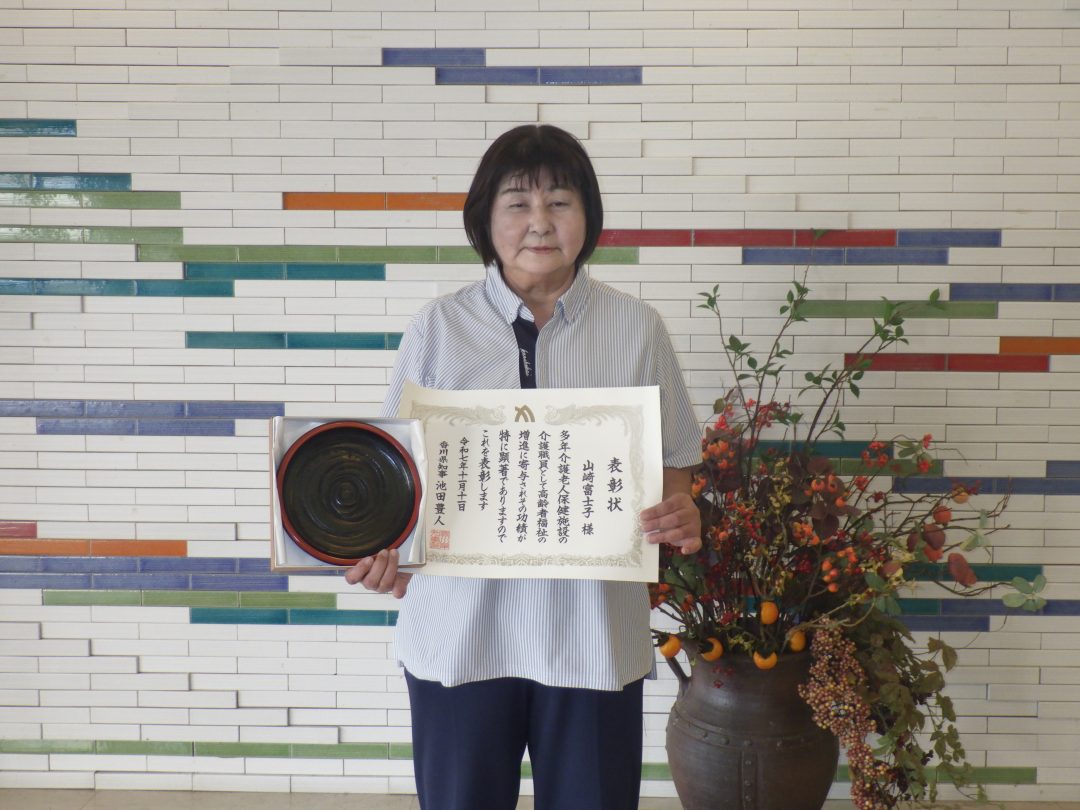 表彰状
山崎富士子 様
多年介護老人保健施設の
介護職員として高齢者福祉の
増進に寄与されその功績が
特に顕著でありますので
これを表彰します
令和七年十一月十一日
香川県知事 池田豊人